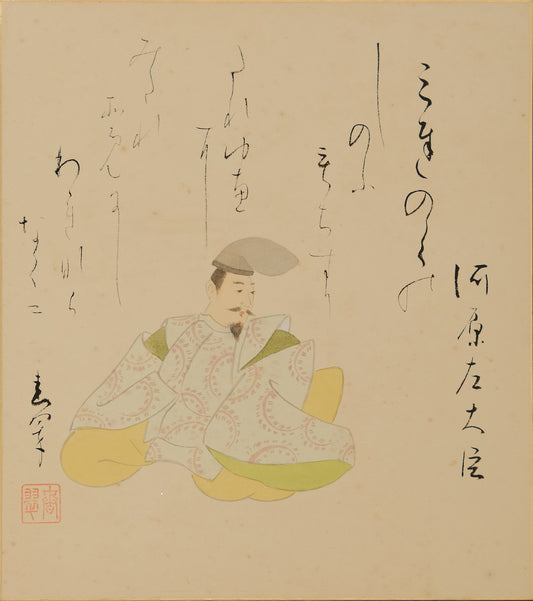 河原左大臣
みちのくの
しのふ
もちすり
たれゆゑ
耳
みたれ
そめ尓し
われ那ら
なくニ